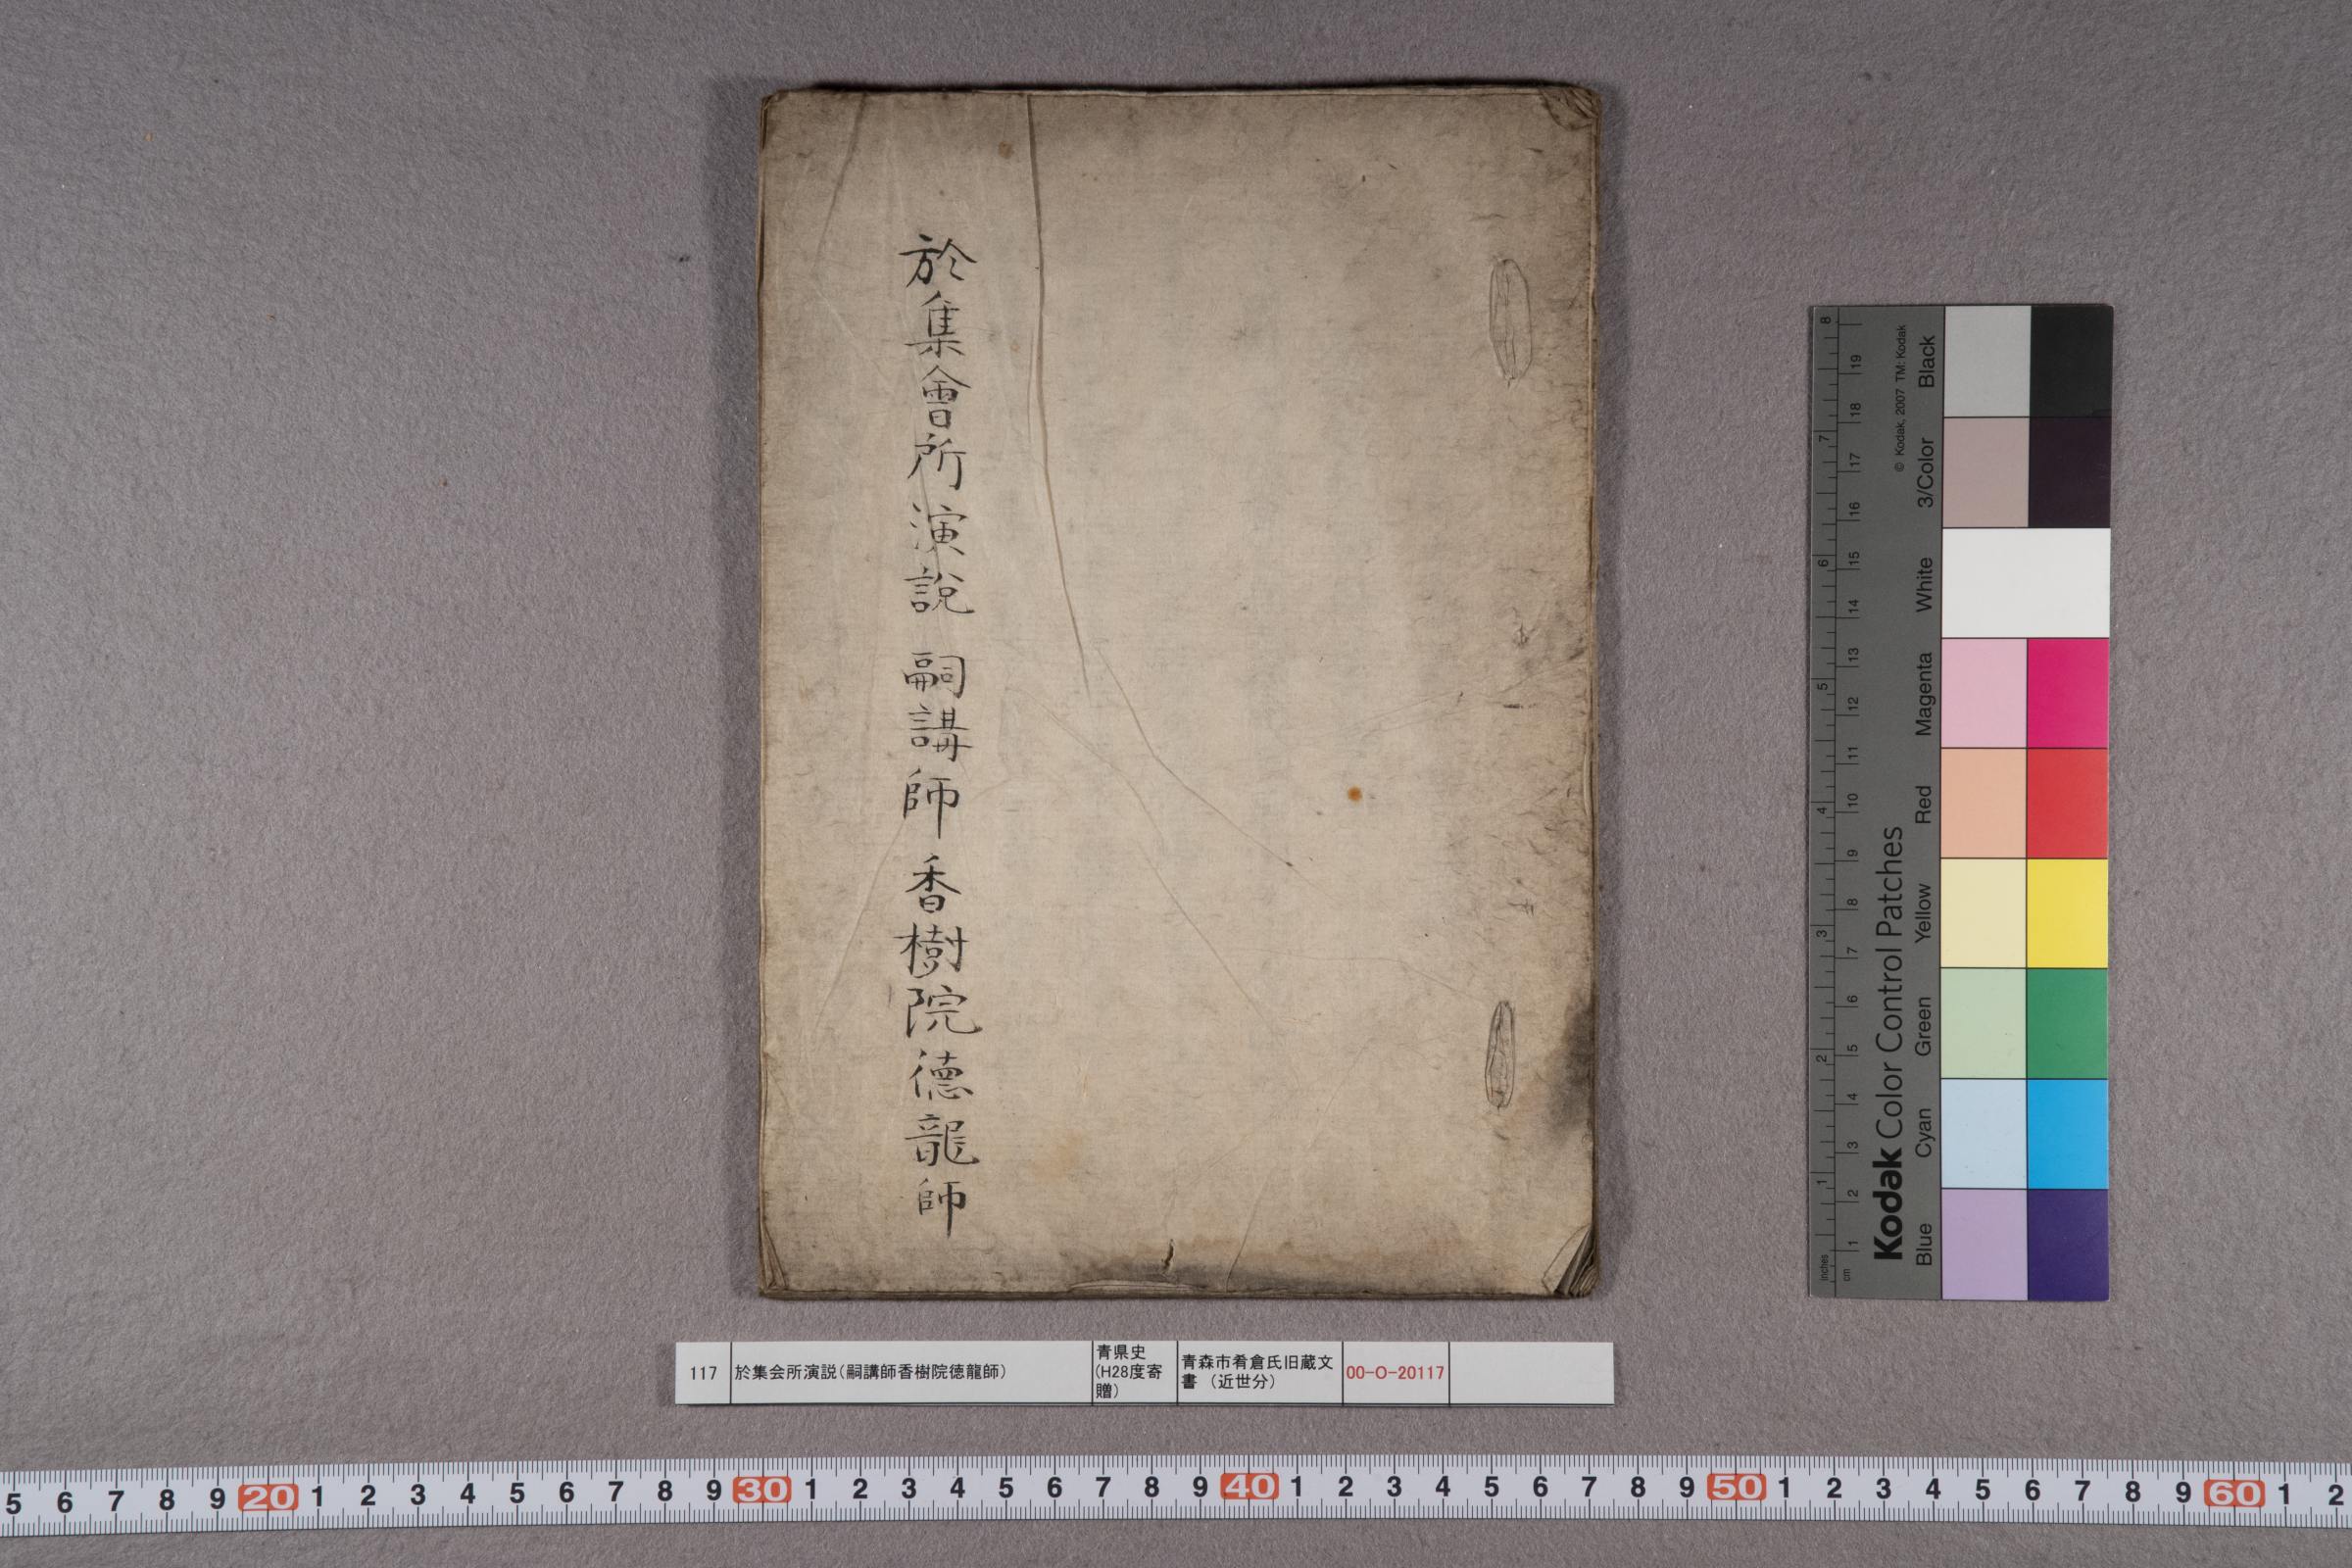 於集會所演說 嗣講師 香樹院德龍師
117
於集会所演説(嗣講師香樹院徳龍師)
青県史
(H28度寄
贈)
青森市肴倉氏旧蔵文
書 (近世分)
00-O-20117
© Kodak, 2007 TM: Kodak
Kodak Color Control Patches
Blue Cyan Green Yellow Red Magenta White 3/Color Black
inches 1 2 3 4 5 6 7 8
cm 1 2 3 4 5 6 7 8 9 10 11 12 13 14 15 16 17 18 19
5 6 7 8 9 20 1 2 3 4 5 6 7 8 9 30 1 2 3 4 5 6 7 8 9 40 1 2 3 4 5 6 7 8 9 50 1 2 3 4 5 6 7 8 9 60 1 2